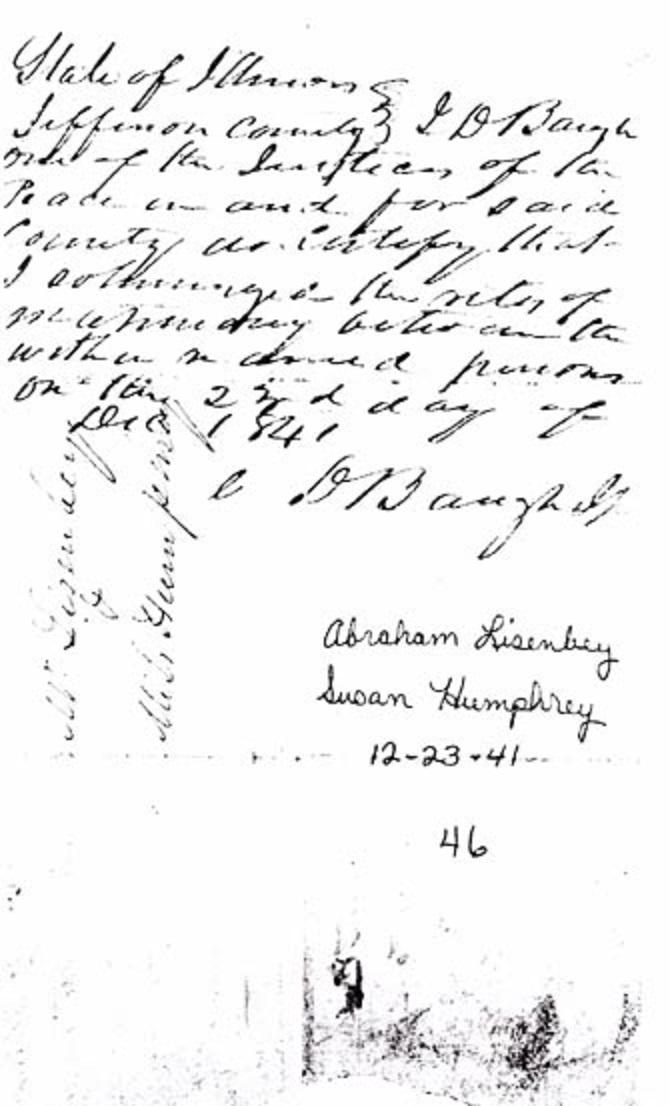 State of Illinois }
Jefferson County } I D Baugh
one of the Justices of the
Peace in and for said
County do certify that
I solemnized the rites of
matrimony between the
within named persons
on the 23d day of
Dec 1841
D Baugh JP
Mr Lisenbey
Miss Humphrey
Abraham Lisenbey
Susan Humphrey
12-23-41
46